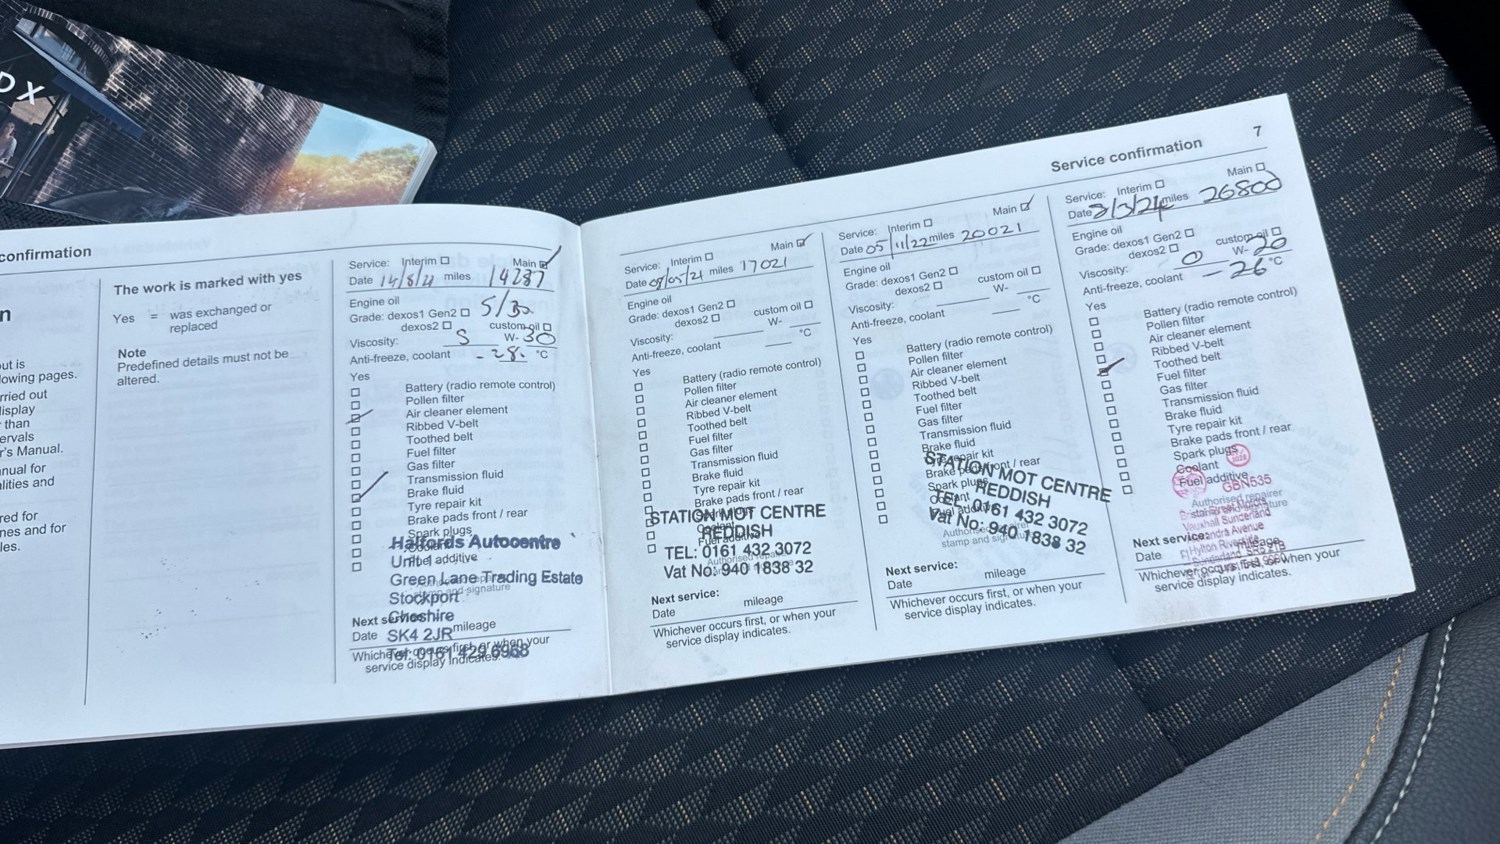 DX
confirmation
n
out is
lowing pages.
rried out
display
than
ervals
r's Manual.
nual for
lities and
red for
nes and for
les.
The work is marked with yes
Yes = was exchanged or
replaced
Note
Predefined details must not be
altered.
Service: Interim Main
Date 14/8/21 miles 14287
Engine oil 5/30
Grade: dexos1 Gen2
dexos2 custom oil
Viscosity: 5 W- 30
Anti-freeze, coolant -28. °C
Yes
Battery (radio remote control)
Pollen filter
Air cleaner element
Ribbed V-belt
Toothed belt
Fuel filter
Gas filter
Transmission fluid
Brake fluid
Tyre repair kit
Brake pads front / rear
Spark plugs
Halfords Autocentre
Green Lane Trading Estate
Stockport
Cheshire
SK4 2JR
Tel: 0161 429 6968
Next service:
Date mileage
Whichever occurs first, or when your
service display indicates.
Service: Interim Main
Date 09/05/21 miles 17021
Engine oil
Grade: dexos1 Gen2
dexos2 custom oil
Viscosity: W-
Anti-freeze, coolant °C
Yes
Battery (radio remote control)
Pollen filter
Air cleaner element
Ribbed V-belt
Toothed belt
Fuel filter
Gas filter
Transmission fluid
Brake fluid
Tyre repair kit
Brake pads front / rear
STATION MOT CENTRE
REDDISH
TEL: 0161 432 3072
Vat No: 940 1838 32
Next service:
Date mileage
Whichever occurs first, or when your
service display indicates.
Service confirmation 7
Service: Interim Main
Date 05/11/22 miles 20021
Engine oil
Grade: dexos1 Gen2
dexos2 custom oil
Viscosity: W-
Anti-freeze, coolant °C
Yes
Battery (radio remote control)
Pollen filter
Air cleaner element
Ribbed V-belt
Toothed belt
Fuel filter
Gas filter
Transmission fluid
Brake fluid
Tyre repair kit
Brake pads front / rear
Spark plugs
STATION MOT CENTRE
REDDISH
TEL: 0161 432 3072
Vat No: 940 1838 32
Authorised repairer
stamp and signature
Next service:
Date mileage
Whichever occurs first, or when your
service display indicates.
Service: Interim Main
Date 8/3/24 miles 26800
Engine oil
Grade: dexos1 Gen2
dexos2 custom oil
Viscosity: 0 W- 20
Anti-freeze, coolant -26 °C
Yes
Battery (radio remote control)
Pollen filter
Air cleaner element
Ribbed V-belt
Toothed belt
Fuel filter
Gas filter
Transmission fluid
Brake fluid
Tyre repair kit
Brake pads front / rear
Spark plugs
Coolant
Fuel additive
GBN535
Authorised repairer
Vauxhall Sunderland
Hylton Riverside
Next service:
Date mileage
Whichever occurs first, or when your
service display indicates.